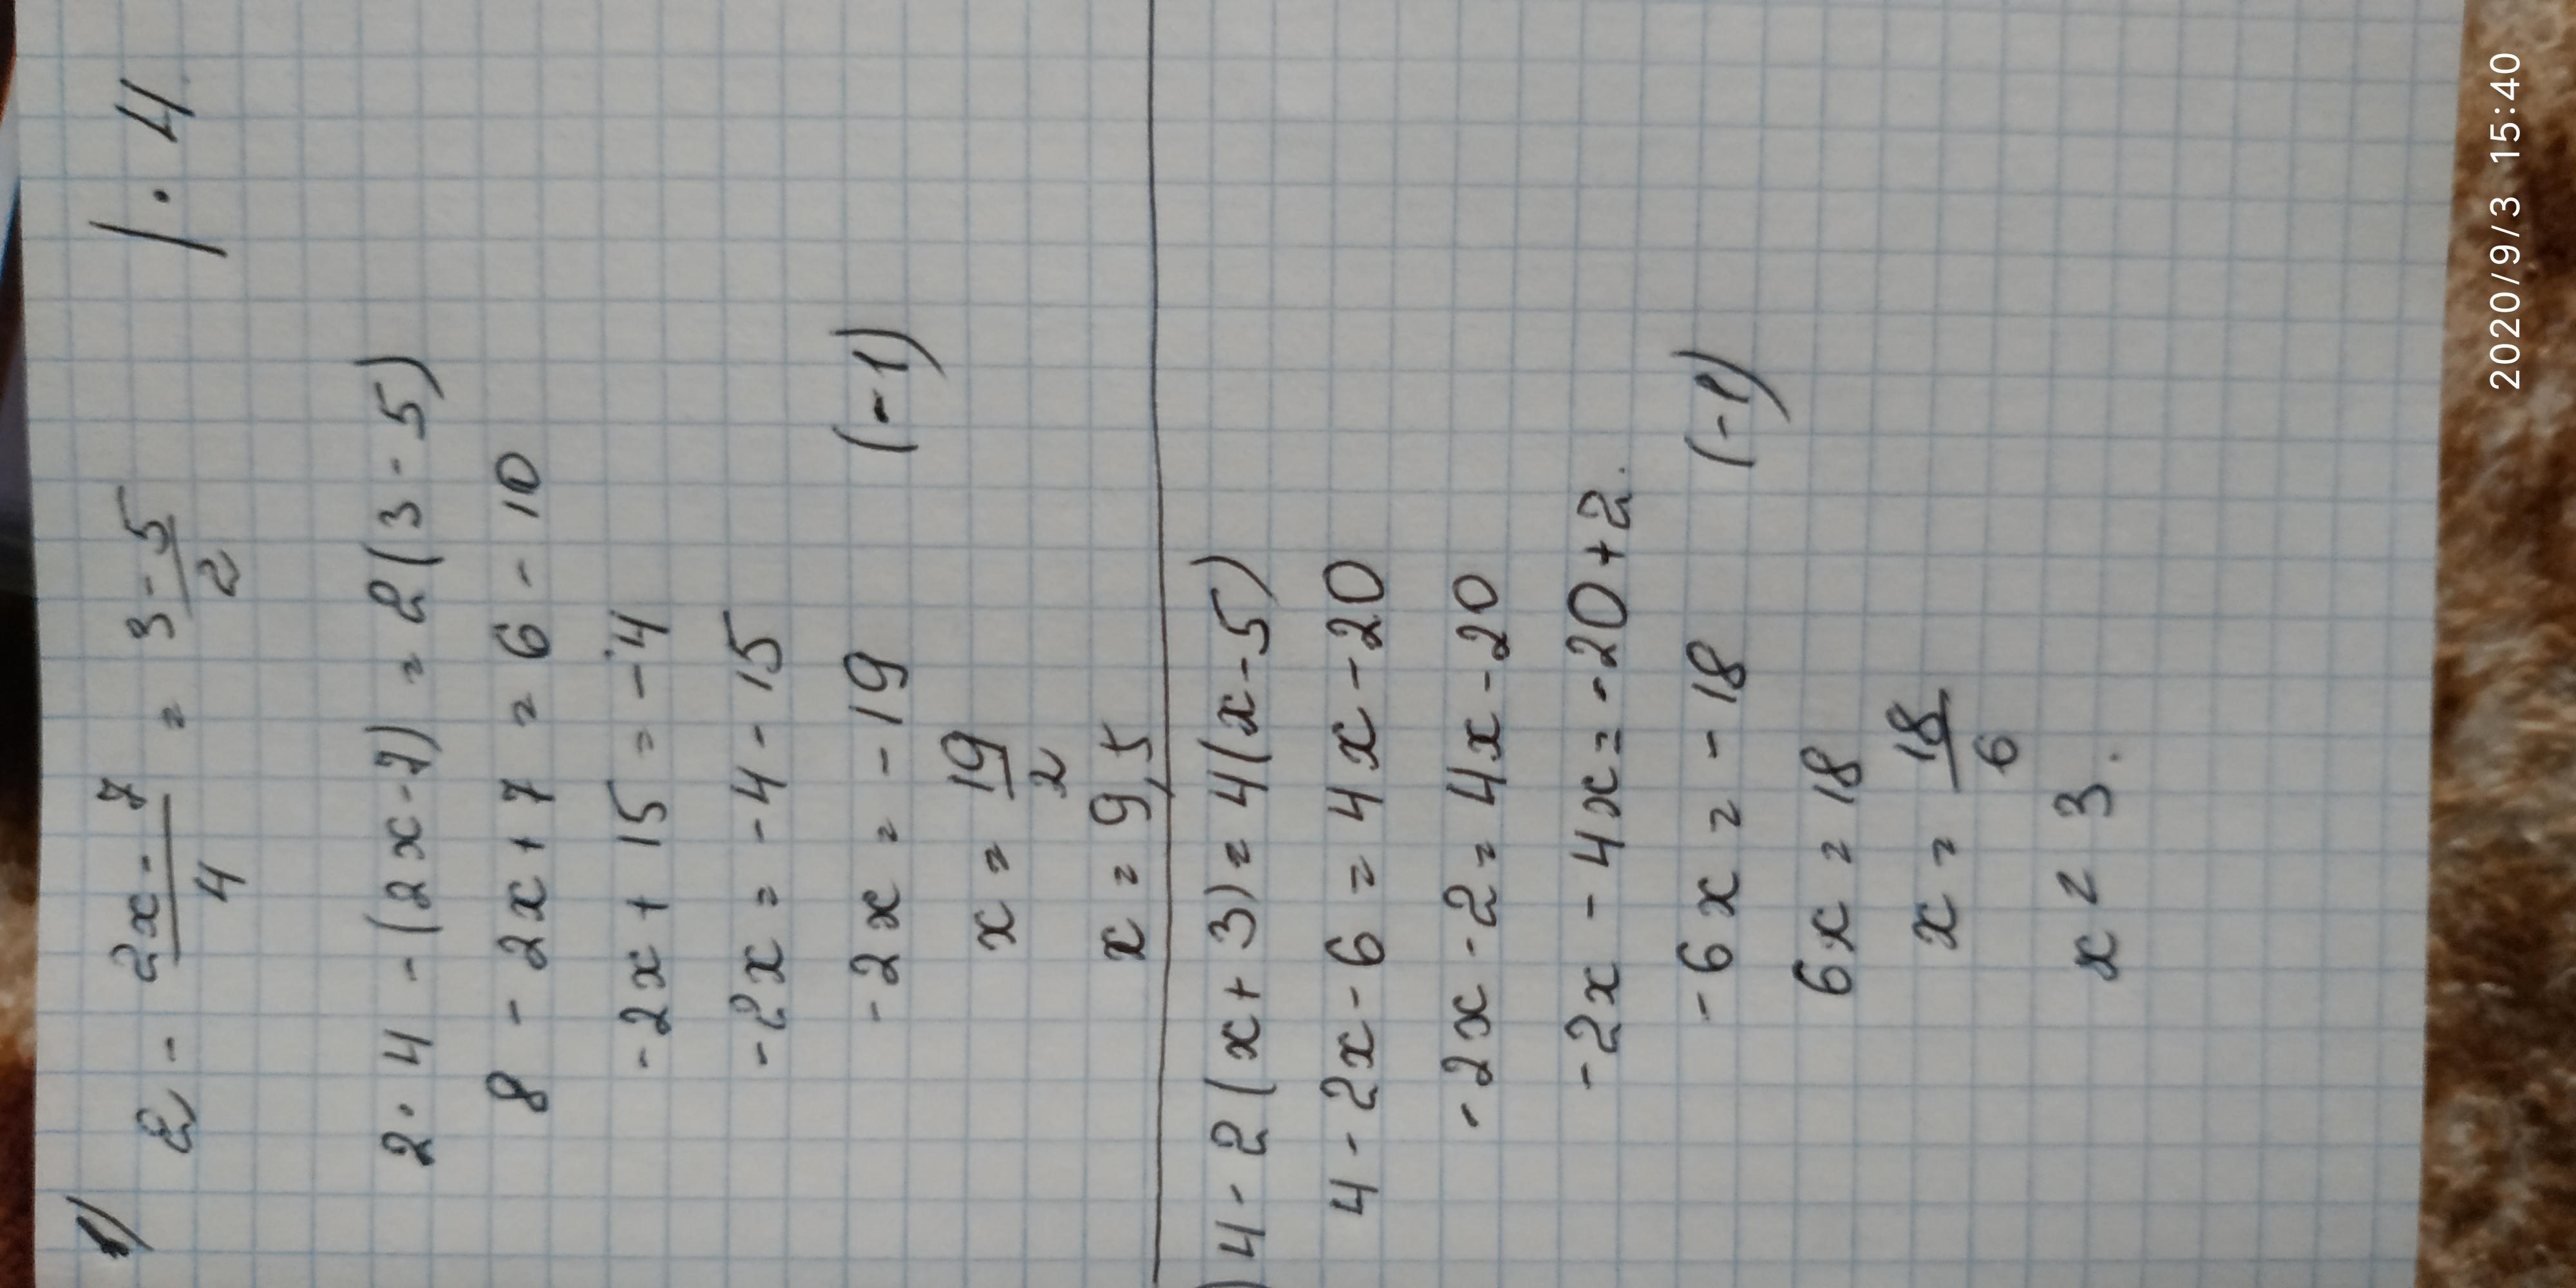 1) 2 - (2x - 7)/4 = (3 - 5)/2 | · 4
2 · 4 - (2x - 7) = 2(3 - 5)
8 - 2x + 7 = 6 - 10
-2x + 15 = -4
-2x = -4 - 15
-2x = -19 (-1)
x = 19/2
x = 9,5
) 4 - 2(x + 3) = 4(x - 5)
4 - 2x - 6 = 4x - 20
-2x - 2 = 4x - 20
-2x - 4x = -20 + 2.
-6x = -18 (-1)
6x = 18
x = 18/6
x = 3.
2020/9/3 15:40